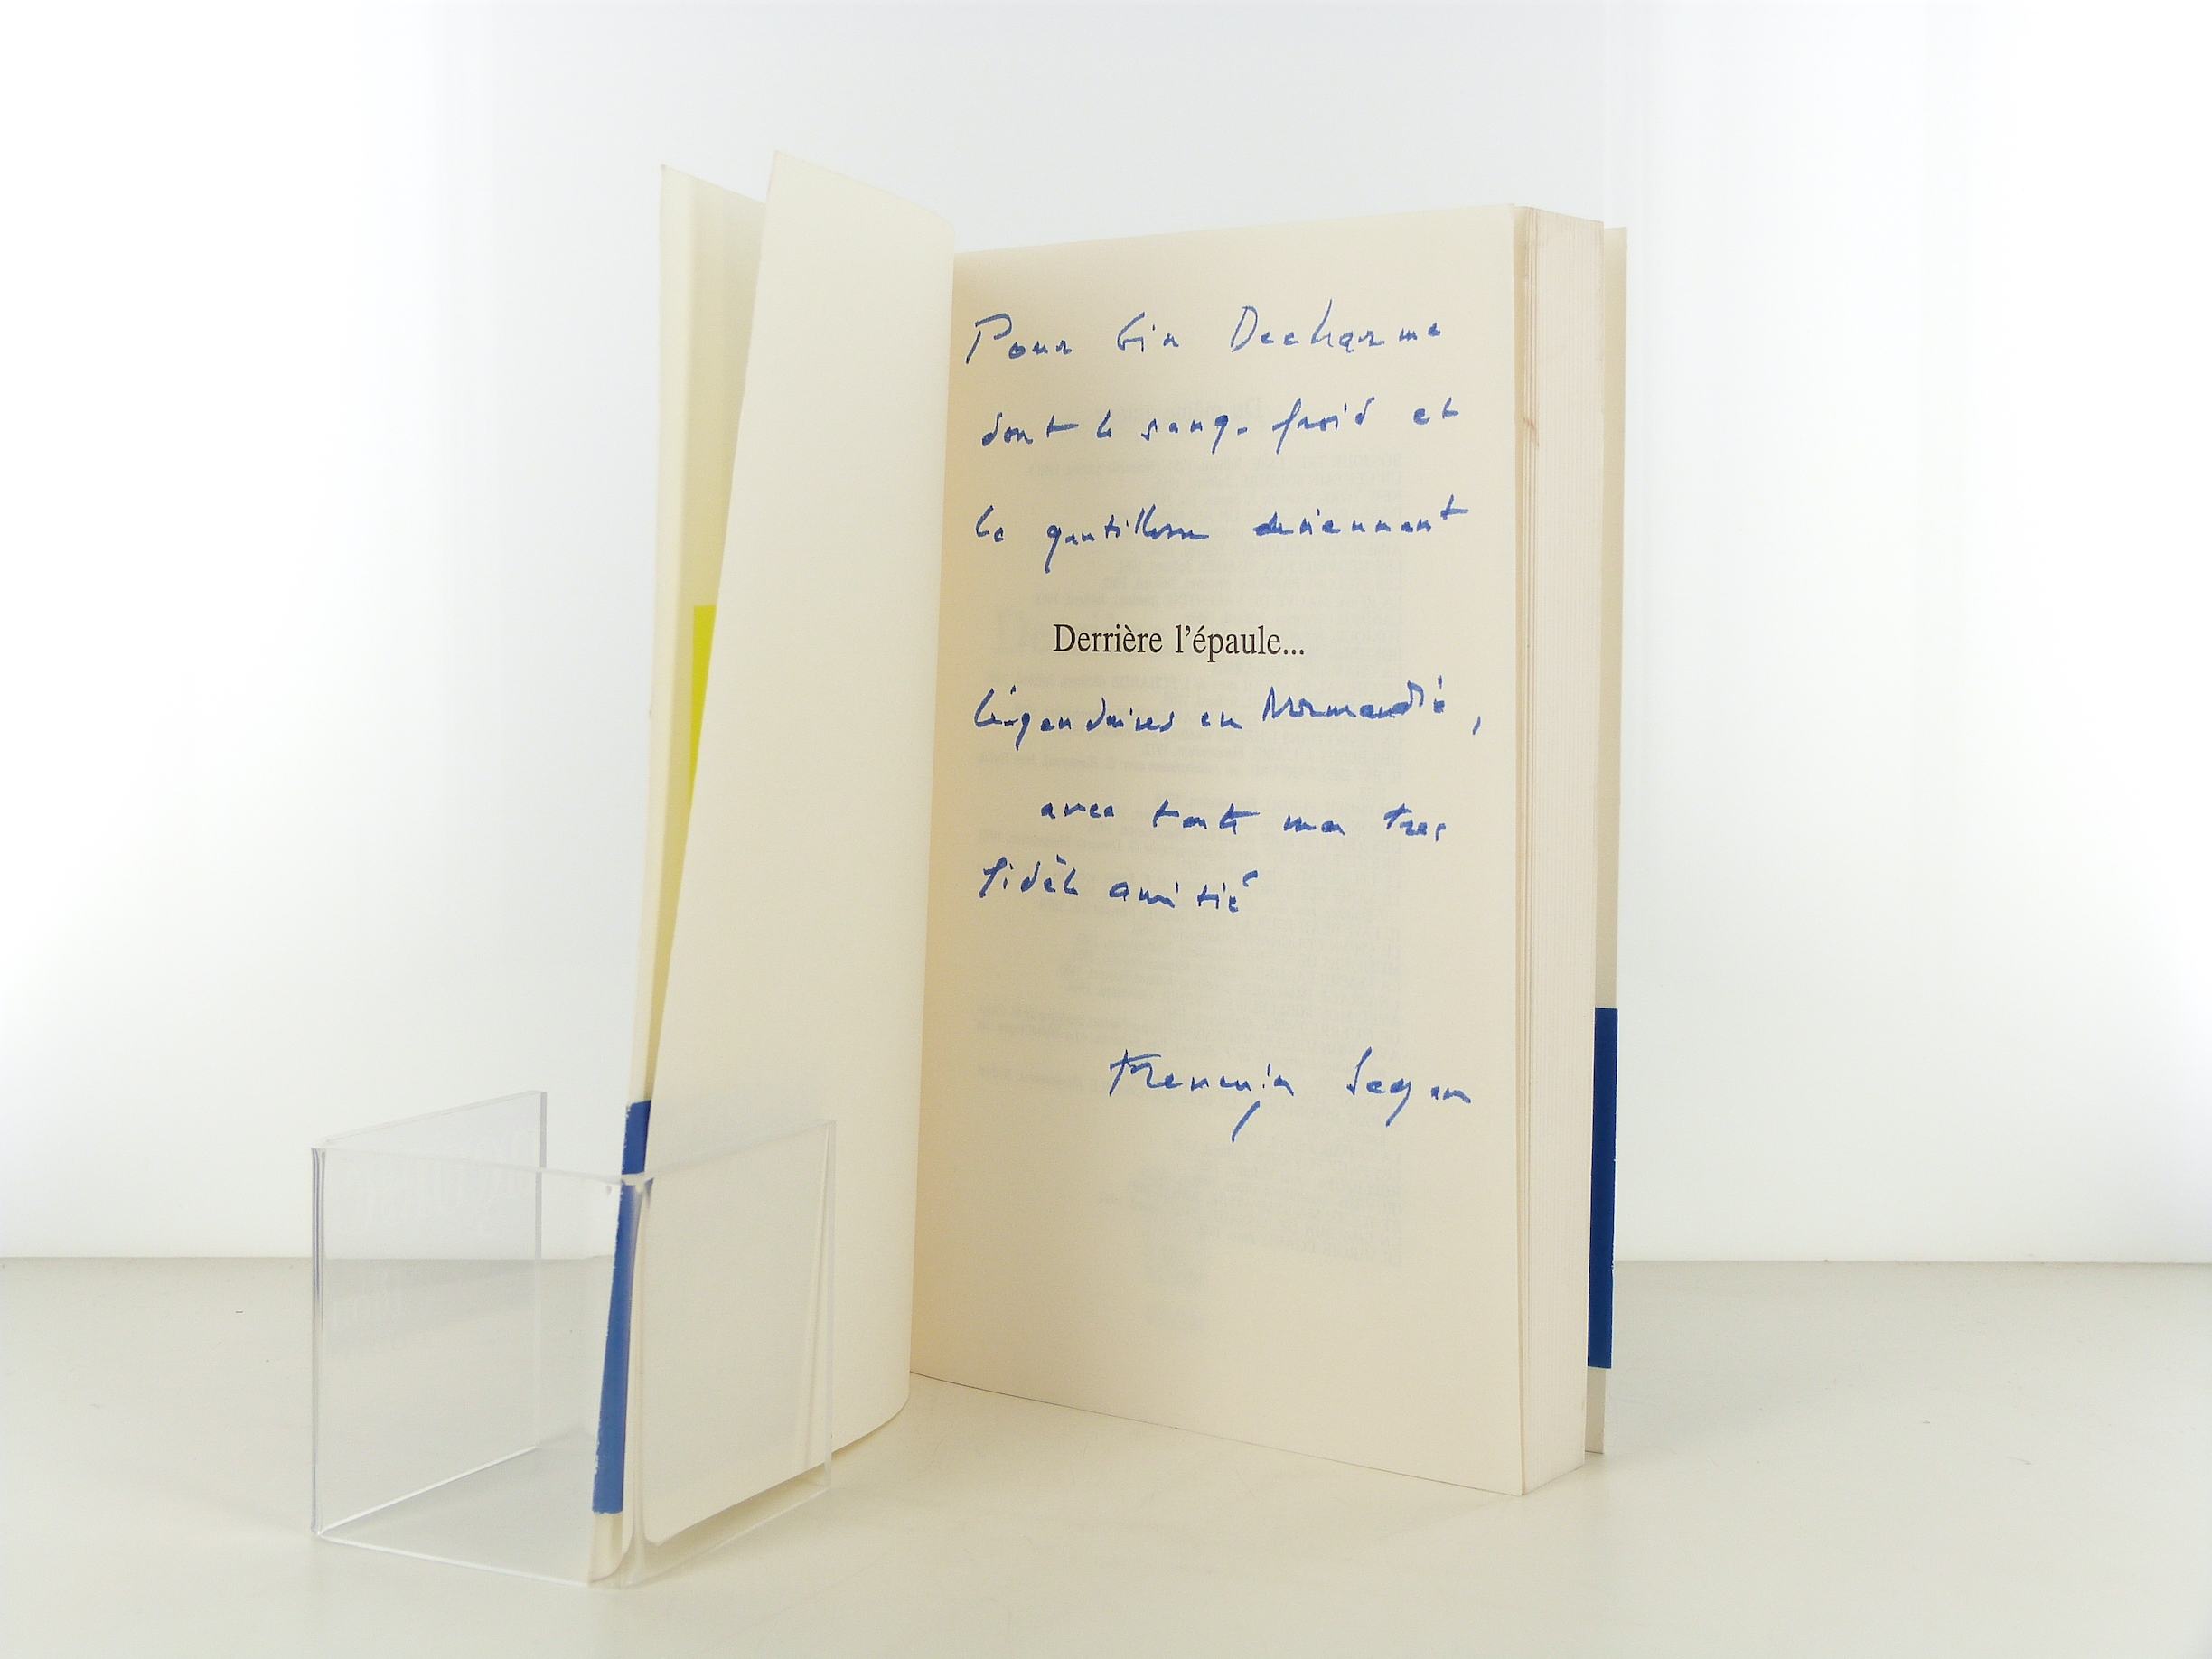 Pour Gin Decharme
dont le sang-froid et
la gentillesse deviennent
Derrière l'épaule...
légendaires en Normandie,
avec toute ma très
fidèle amitié
Françoise Sagan